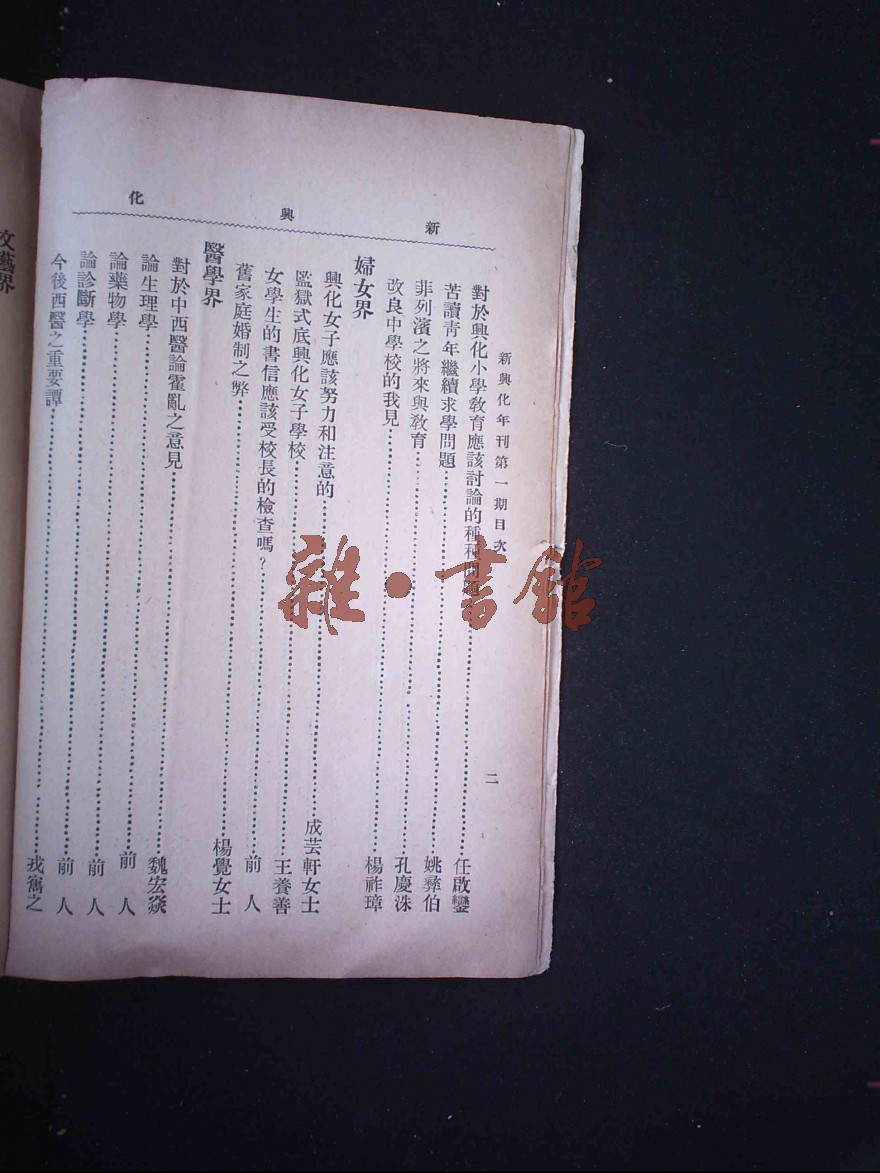 新興化
新興化年刊第一期目次 二
對於興化小學敎育應該討論的種種問題 任啟鑾
苦讀靑年繼續求學問題 姚彝伯
非列濱之將來與敎育 孔慶洙
改良中學校的我見 楊祚璋
婦女界
興化女子應該努力和注意的 成芸軒女士
監獄式底興化女子學校 王養善
女學生的書信應該受校長的檢查嗎? 前人
舊家庭婚制之弊 楊覺女士
醫學界
對於中西醫論霍亂之意見 魏宏焱
論生理學 前人
論藥物學 前人
論診斷學 前人
今後西醫之重要譚 戎寯之
文藝界
雜·書館